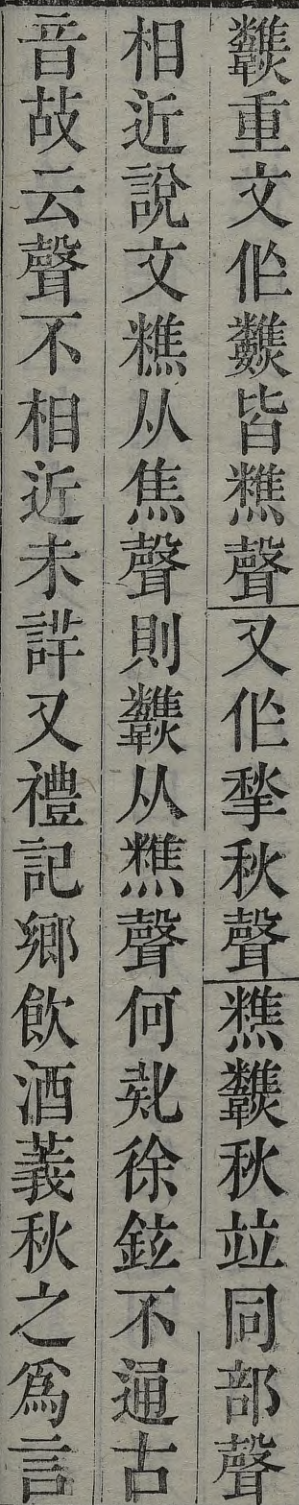 重文作皆𥼚聲又作揫秋聲𥼚秋竝同部聲
相近說文𥼚从焦聲則从𥼚聲何徐鉉不通古
音故云聲不相近未詳又禮記鄉飲酒義秋之爲言